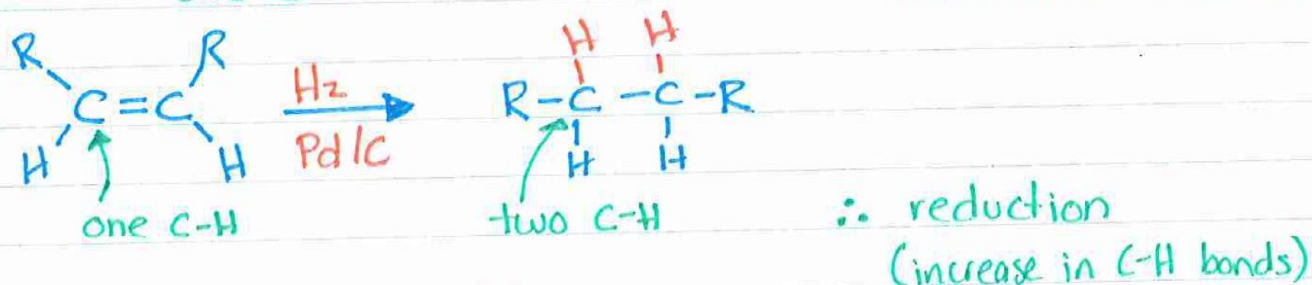 R R H H
C=C H2 R-C-C-R
H H Pd/C H H
one C-H two C-H ∴ reduction
(increase in C-H bonds)